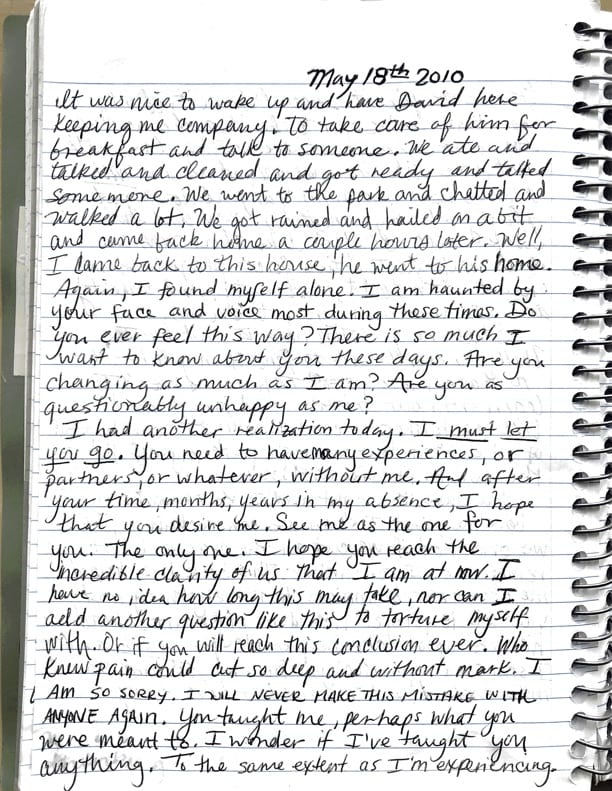 May 18th 2010
It was nice to wake up and have David here
keeping me company. To take care of him for
breakfast and talk to someone. We ate and
talked and cleaned and got ready and talked
some more. We went to the park and chatted and
walked a lot. We got rained and hailed on a bit
and came back home a couple hours later. Well,
I came back to this house, he went to his home.
Again, I found myself alone. I am haunted by
your face and voice most during these times. Do
you ever feel this way? There is so much I
want to know about you these days. Are you
changing as much as I am? Are you as
questionably unhappy as me?
I had another realization today. I must let
you go. You need to have many experiences, or
partners, or whatever, without me. And after
your time, months, years in my absence, I hope
that you desire me. See me as the one for
you. The only one. I hope you reach the
incredible clarity of us that I am at now. I
have no idea how long this may take, nor can I
add another question like this to torture myself
with. Or if you will reach this conclusion ever. Who
knew pain could cut so deep and without mark. I
AM SO SORRY. I WILL NEVER MAKE THIS MISTAKE WITH
ANYONE AGAIN. You taught me, perhaps what you
were meant to. I wonder if I've taught you
anything. To the same extent as I'm experiencing.